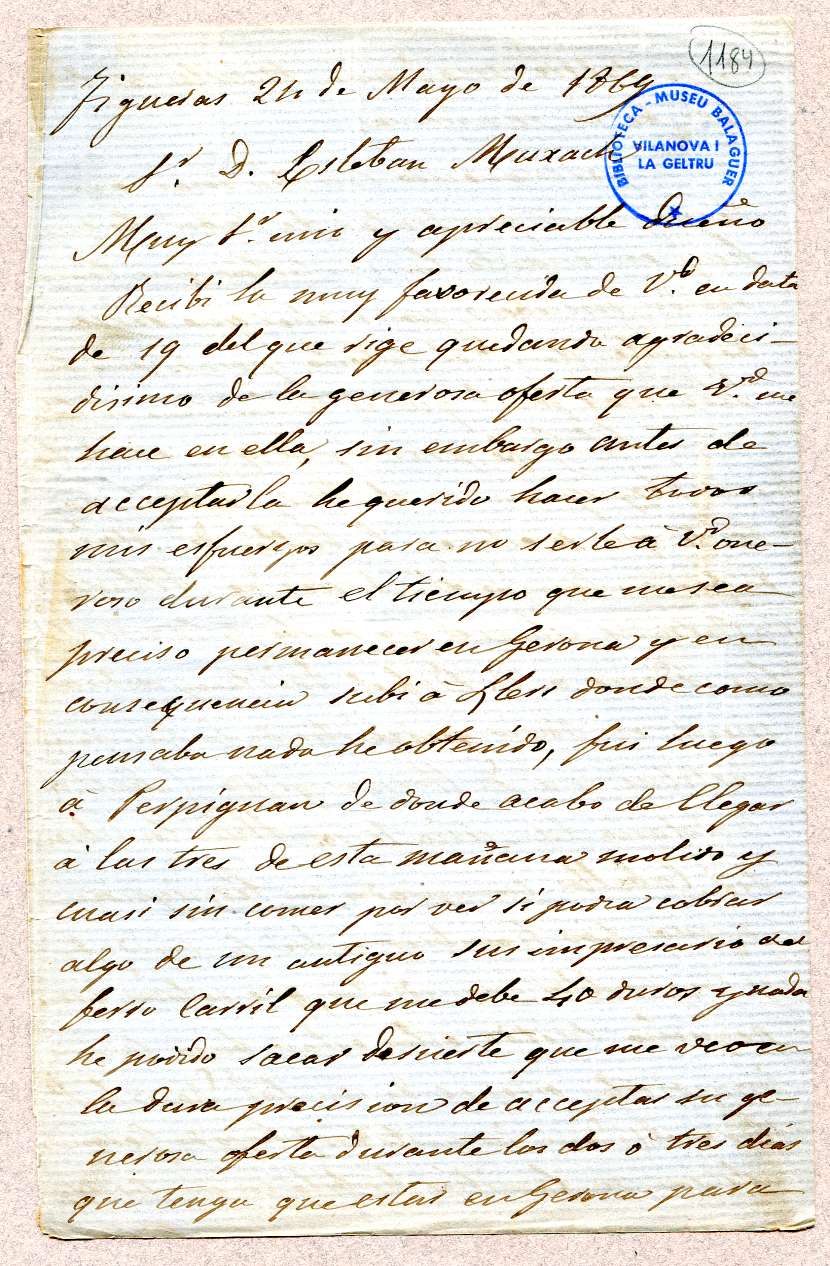 1184
BIBLIOTECA - MUSEU BALAGUER
VILANOVA I
LA GELTRU
Figueras 24 de Mayo de 1869
Sr. D. Esteban Muxach
Muy Sr. mio y apreciable Dueño
Recibi la muy favorecida de Vd. en data
de 19 del que rige quedando agradeci-
disimo de la generosa oferta que Vd. me
hace en ella, sin embargo antes de
acceptarla he querido hacer todos
mis esfuerzos para no serle à Vd. one-
roso durante el tiempo que me sea
preciso permanecer en Gerona y en
consecquencia subi à Llers donde como
pensaba nada he obtenído, fui luego
à Perpígnan de donde acabo de llegar
à las tres de esta mañana molido y
cuasi sin comer por ver si podia cobrar
algo de un antiguo sus impresario del
ferro Carríl que me debe 40 duros y nada
he podido sacar desuerte que me veo en
la dura precision de acceptar su ge-
nerosa oferta durante los dos ò tres días
que tenga que estar en Gerona para